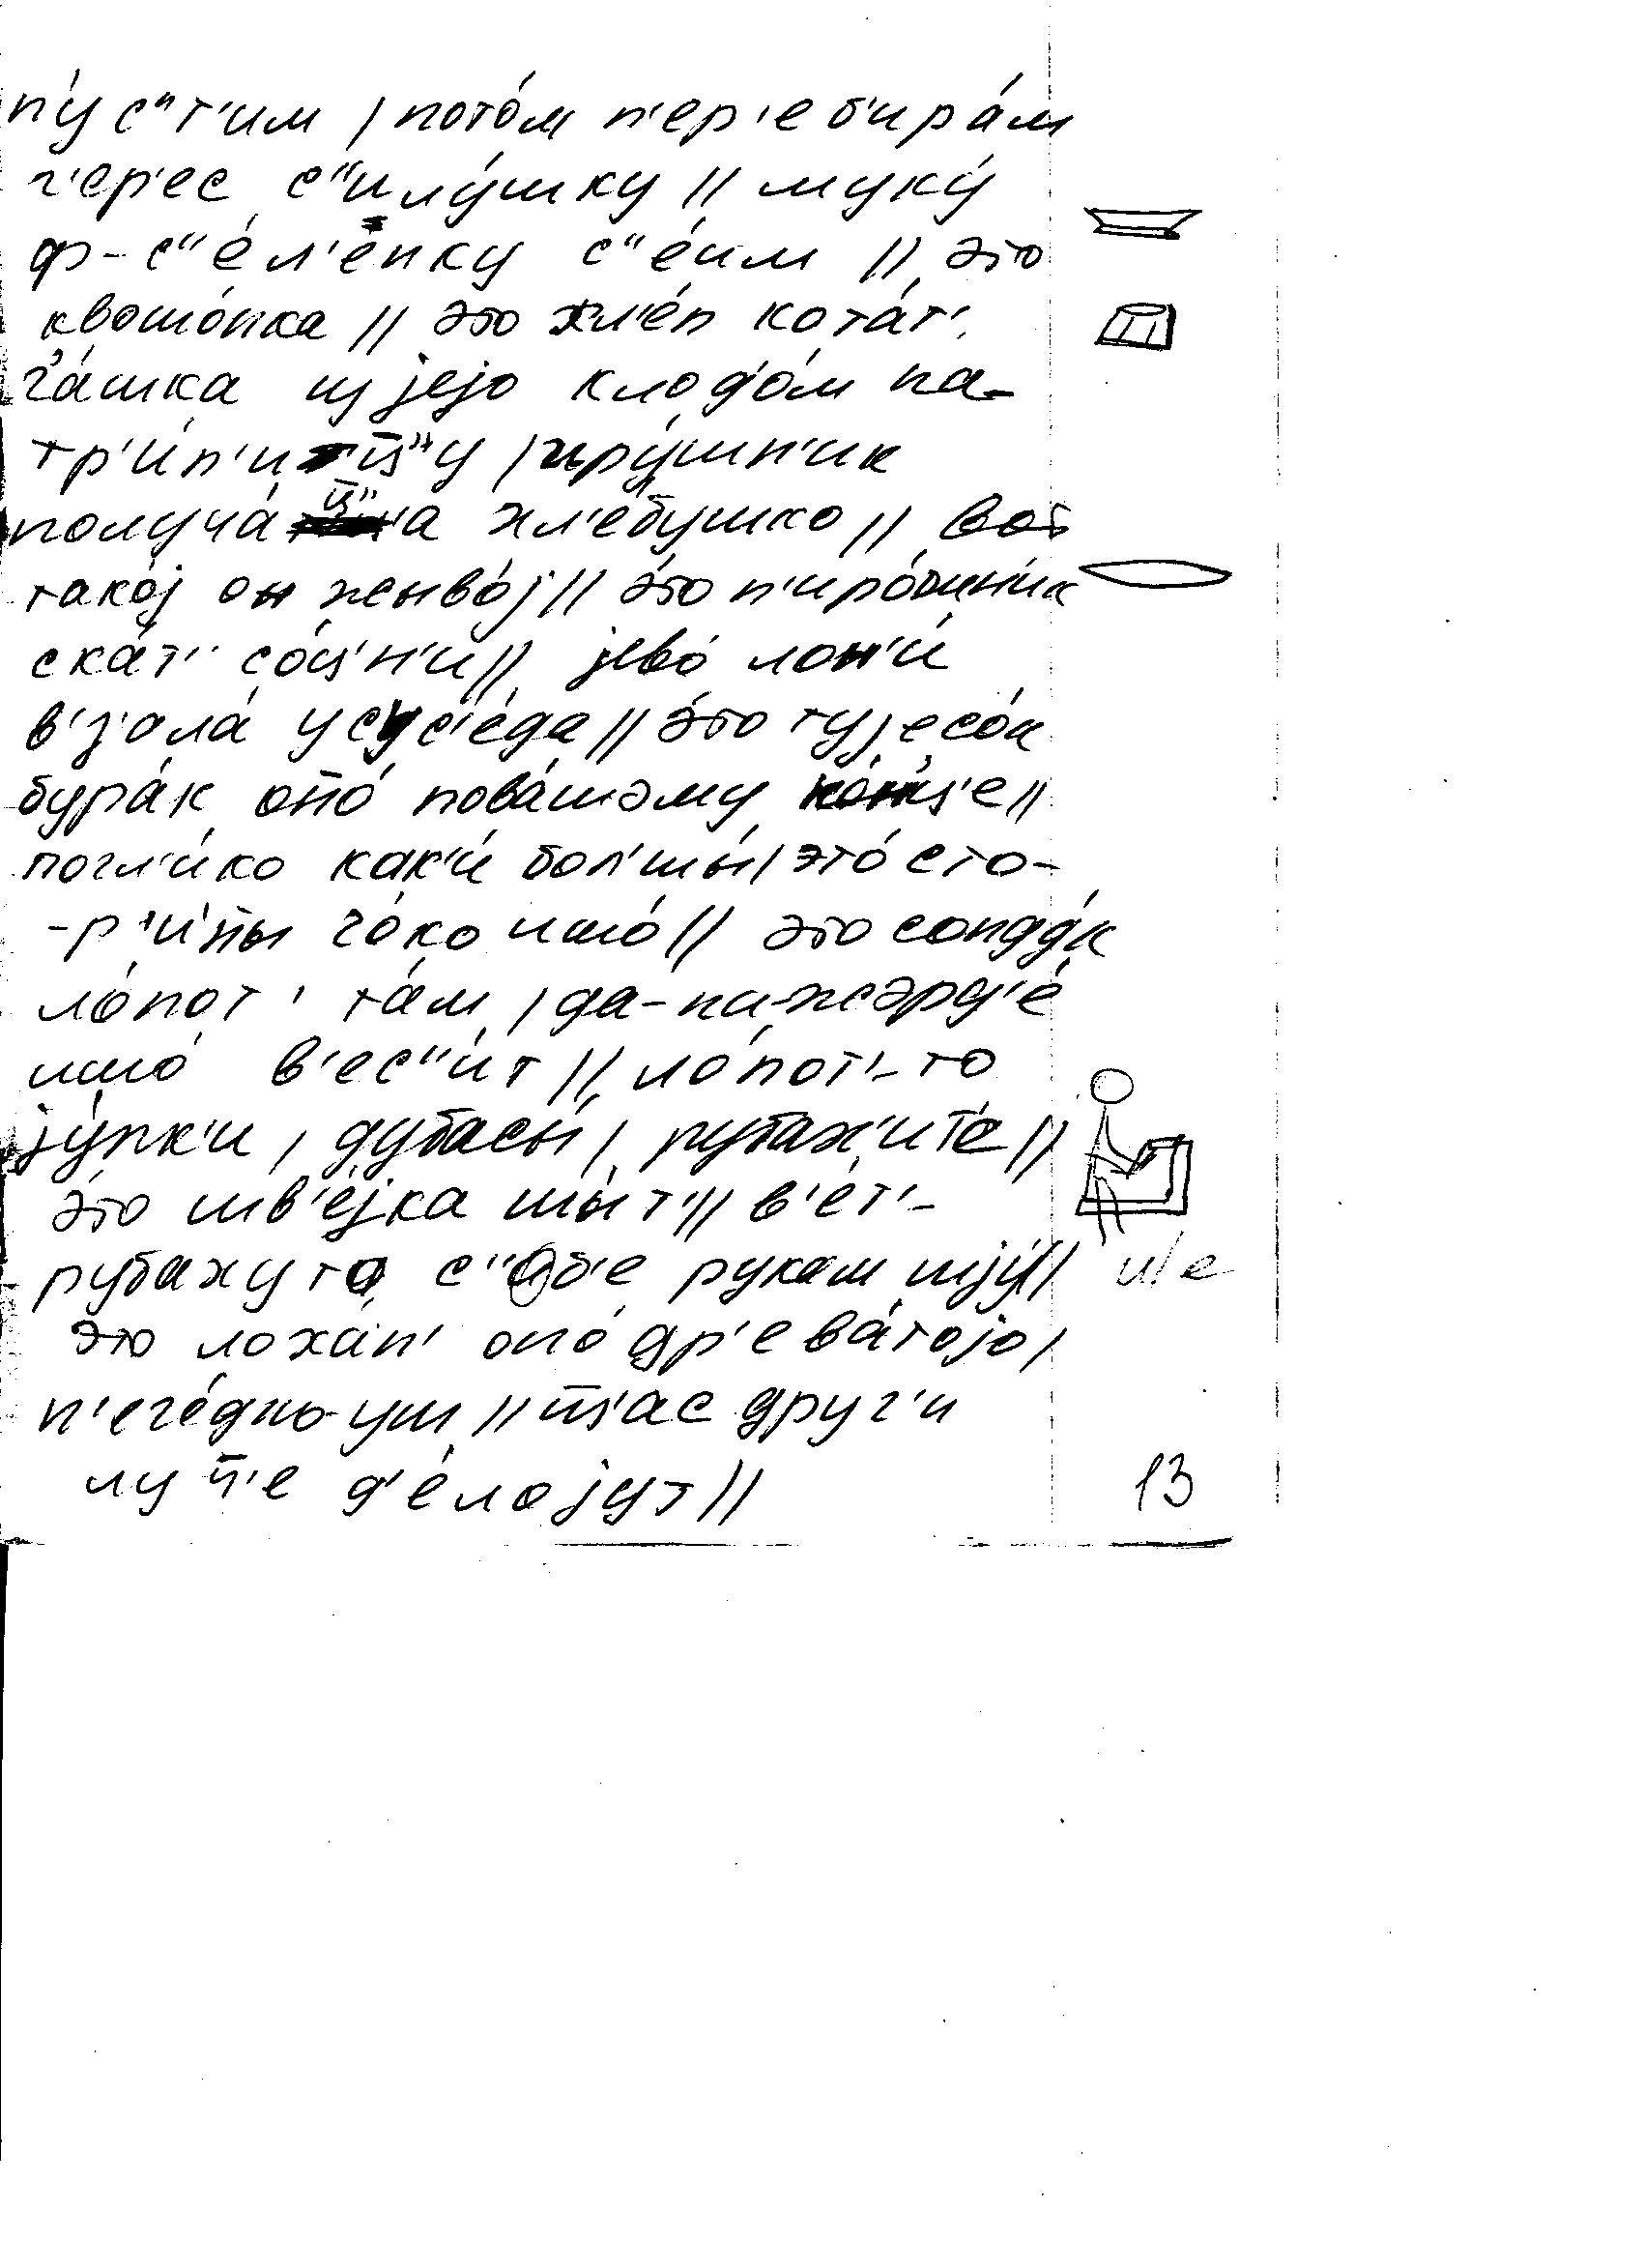 пу́с"т'им / пото́м п'ер'еб'ира́м
г'ер'ес с"илу́шку // муку́
ф-с"е́л'енку с"е́им // это
квашо́нка // это хл'е́п ката́т'
ча́шка jejо кладо́м на-
тр'и́п'и
получа а хл'е́бушко // вот
тако́j он жыво́j // э́то п'иро́шн'ик
ска́т' со́ц'н'и // jево́ лон'и́
в'з'ала́ у сус'е́да // э́то туjесо́к
бура́к оно́ пова́шэму
погл'и́ко как'и́ бол'шы́ / это́ сто-
-р'и́нны чо́ко ишо́ // это сонду́к
ло́пот' та́м / да-на-жэрд'е́
ишо́ в'ес"и́т // ло́пот'-то
jу́пк'и / дубасы́ / рубах'ит'е //
э́то шв'е́jка шы́т' // в'е́т'-
рубаху то с"об'е рукам шjу́ // и/е
это лоха́н' оно́ др'ева́тоjо /
н'его́дно уш // тц'ас друг'и
лу ч'е д'е́лаjут //
13